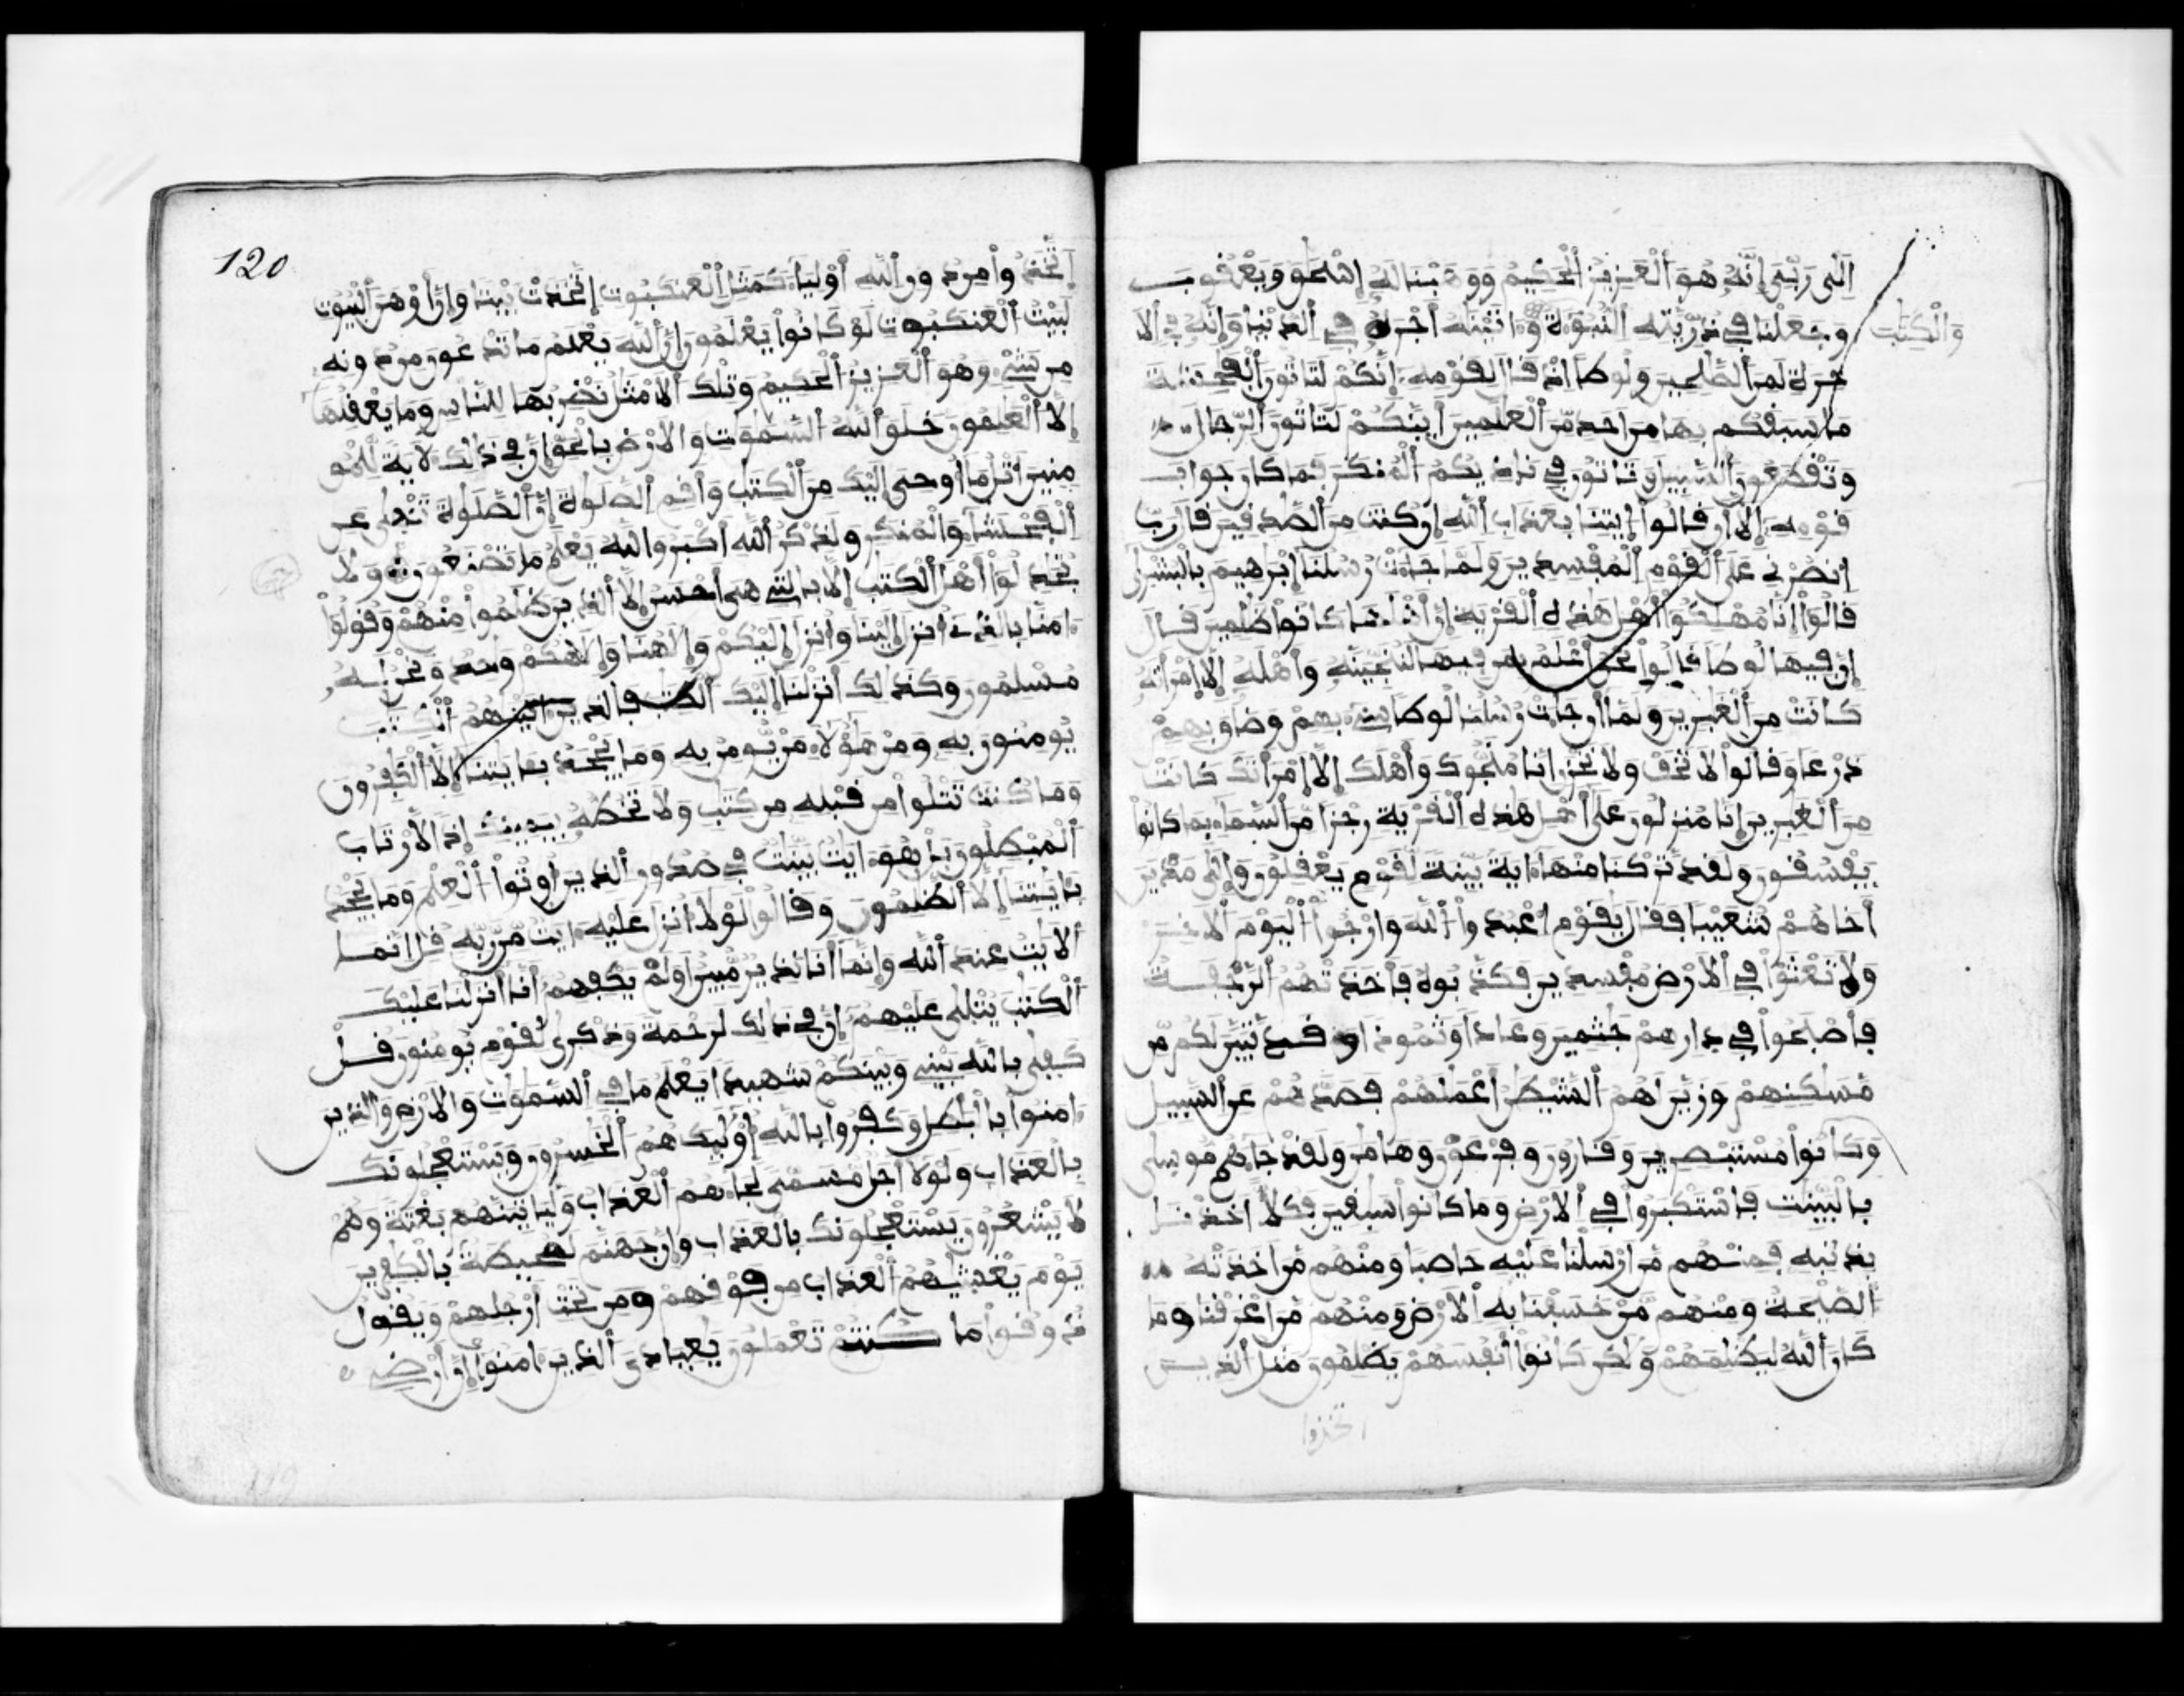 اِلَىٰ رَبِّىَ إِنَّهُۥ هُوَ اَ۬لْعَزِيزُ اُ۬لْحَكِيمُ وَوَهَبْنَا لَهُۥ إِسْحَٰقَ وَيَعْقُوبَ
وَالْكِتَٰبَ
وَجَعَلْنَا فِے ذُرِّيَّتِهِ اِ۬لنُّبُوٓءَةَ وَءَاتَيْنَٰهُ أَجْرَهُۥ فِے اِ۬لدُّنْيَا وَإِنَّهُۥ فِے اِ۬لَا
خِرَةِ لَمِنَ اَ۬لصَّٰلِحِينَ وَلُوطًا اِذْ قَالَ لِقَوْمِهِۦٓ إِنَّكُمْ لَتَاتُونَ اَ۬لْفَٰحِشَةَ
مَا سَبَقَكُم بِهَا مِنَ اَحَدٖ مِّنَ اَ۬لْعَٰلَمِينَ أَئِنَّكُمْ لَتَاتُونَ اَ۬لرِّجَالَ
وَتَقْطَعُونَ اَ۬لسَّبِيلَ وَتَاتُونَ فِے نَادِيكُمُ اُ۬لْمُنكَرَ فَمَا كَانَ جَوَابَ
قَوْمِهِۦٓ إِلَّآ أَن قَالُوا۟ اُ۪يتِنَا بِعَذَابِ اِ۬للَّهِ إِن كُنتَ مِنَ اَ۬لصَّٰدِقِينَ قَالَ رَبِّ
اِ۟نصُرْنِے عَلَى اَ۬لْقَوْمِ اِ۬لْمُفْسِدِينَ وَلَمَّا جَآءَتْ رُسُلُنَآ إِبْرَٰهِيمَ بِالْبُشْرَىٰ
قَالُوٓا۟ إِنَّا مُهْلِكُوٓا۟ أَهْلِ هَٰذِهِ اِ۬لْقَرْيَةِ إِنَّ أَهْلَهَا كَانُوا۟ ظَٰلِمِينَ قَالَ
إِنَّ فِيهَا لُوطًا قَالُوا۟ نَحْنُ أَعْلَمُ بِمَن فِيهَا لَنُنَجِّيَنَّهُۥ وَأَهْلَهُۥٓ إِلَّا اَ۪مْرَأَتَهُۥ
كَانَتْ مِنَ اَ۬لْغَٰبِرِينَ وَلَمَّآ أَن جَآءَتْ رُسُلُنَا لُوطًا سِےٓءَ بِهِمْ وَضَاقَ بِهِمْ
ذَرْعًا وَقَالُوا۟ لَا تَخَفْ وَلَا تَحْزَنِ اِنَّا مُنَجُّوكَ وَأَهْلَكَ إِلَّا اَ۪مْرَأَتَكَ كَانَتْ
مِنَ اَ۬لْغَٰبِرِينَ إِنَّا مُنزِلُونَ عَلَىٰٓ أَهْلِ هَٰذِهِ اِ۬لْقَرْيَةِ رِجْزًا مِّنَ اَ۬لسَّمَآءِ بِمَا كَانُوا۟
يَفْسُقُونَ وَلَقَد تَّرَكْنَا مِنْهَآ ءَايَةَۢ بَيِّنَةٗ لِّقَوْمٖ يَعْقِلُونَ وَإِلَىٰ مَدْيَنَ
أَخَاهُمْ شُعَيْبًا فَقَالَ يَٰقَوْمِ اِ۟عْبُدُوا۟ اُ۬للَّهَ وَارْجُوا۟ اُ۬لْيَوْمَ اَ۬لَاخِرَ
وَلَا تَعْثَوْا۟ فِے اِ۬لَارْضِ مُفْسِدِينَ فَكَذَّبُوهُ فَأَخَذَتْهُمُ اُ۬لرَّجْفَةُ
فَأَصْبَحُوا۟ فِے دَارِهِمْ جَٰثِمِينَ وَعَادٗا وَثَمُودًا وَقَد تَّبَيَّنَ لَكُم مِّن
مَّسَٰكِنِهِمْ وَزَيَّنَ لَهُمُ اُ۬لشَّيْطَٰنُ أَعْمَٰلَهُمْ فَصَدَّهُمْ عَنِ اِ۬لسَّبِيلِ
وَكَانُوا۟ مُسْتَبْصِرِينَ وَقَٰرُونَ وَفِرْعَوْنَ وَهَٰمَٰنَ وَلَقَدْ جَآءَهُم مُّوسَىٰ
بِالْبَيِّنَٰتِ فَاسْتَكْبَرُوا۟ فِے اِ۬لَارْضِ وَمَا كَانُوا۟ سَٰبِقِينَ فَكُلًّا اَخَذْنَا
بِذَنۢبِهِۦ فَمِنْهُم مَّنَ اَرْسَلْنَا عَلَيْهِ حَاصِبًا وَمِنْهُم مَّنَ اَخَذَتْهُ
اُ۬لصَّيْحَةُ وَمِنْهُم مَّنْ خَسَفْنَا بِهِ اِ۬لَارْضَ وَمِنْهُم مَّنَ اَغْرَقْنَا وَمَا
كَانَ اَ۬للَّهُ لِيَظْلِمَهُمْ وَلَٰكِن كَانُوٓا۟ أَنفُسَهُمْ يَظْلِمُونَ مَثَلُ اُ۬لذِينَ
اتخذوا
120
اَ۪تَّخَذُوا۟ مِن دُونِ اِ۬للَّهِ أَوْلِيَآءَ كَمَثَلِ اِ۬لْعَنكَبُوتِ اِ۪تَّخَذَتْ بَيْتٗا وَإِنَّ أَوْهَنَ اَ۬لْبُيُوتِ
لَبَيْتُ اُ۬لْعَنكَبُوتِ لَوْ كَانُوا۟ يَعْلَمُونَ إِنَّ اَ۬للَّهَ يَعْلَمُ مَا تَدْعُونَ مِن دُونِهِ
مِن شَےْءٖ وَهُوَ اَ۬لْعَزِيزُ اُ۬لْحَكِيمُ وَتِلْكَ اَ۬لَامْثَٰلُ نَضْرِبُهَا لِلنَّاسِ وَمَا يَعْقِلُهَآ
إِلَّا اَ۬لْعَٰلِمُونَ خَلَقَ اَ۬للَّهُ اُ۬لسَّمَٰوَٰتِ وَالَارْضَ بِالْحَقِّ إِنَّ فِے ذَٰلِكَ لَأٓيَةٗ لِّلْمُو
مِنِينَ اَ۟تْلُ مَآ أُوحِىَ إِلَيْكَ مِنَ اَ۬لْكِتَٰبِ وَأَقِمِ اِ۬لصَّلَوٰةَ إِنَّ اَ۬لصَّلَوٰةَ تَنْهَىٰ عَنِ
اِ۬لْفَحْشَآءِ وَالْمُنكَرِ وَلَذِكْرُ اُ۬للَّهِ أَكْبَرُ وَاللَّهُ يَعْلَمُ مَا تَصْنَعُونَ وَلَا
تُجَٰدِلُوٓا۟ أَهْلَ اَ۬لْكِتَٰبِ إِلَّا بِالتِے هِىَ أَحْسَنُ إِلَّا اَ۬لذِينَ ظَلَمُوا۟ مِنْهُمْ وَقُولُوٓا۟
ءَامَنَّا بِالذِےٓ أُنزِلَ إِلَيْنَا وَأُنزِلَ إِلَيْكُمْ وَإِلَٰهُنَا وَإِلَٰهُكُمْ وَٰحِدٞ وَنَحْنُ لَهُۥ
مُسْلِمُونَ وَكَذَٰلِكَ أَنزَلْنَآ إِلَيْكَ اَ۬لْكِتَٰبَ فَالذِينَ ءَاتَيْنَٰهُمُ اُ۬لْكِتَٰبَ
يُومِنُونَ بِهِۦ وَمِنْ هَٰٓؤُلَآءِ مَنْ يُّومِنُ بِهِۦ وَمَا يَجْحَدُ بِـَٔايَٰتِنَآ إِلَّا اَ۬لْكَٰفِرُونَ
وَمَا كُنتَ تَتْلُوا۟ مِن قَبْلِهِۦ مِن كِتَٰبٖ وَلَا تَخُطُّهُۥ بِيَمِينِكَ إِذٗا لَّارْتَابَ
اَ۬لْمُبْطِلُونَ بَلْ هُوَ ءَايَٰتُۢ بَيِّنَٰتٞ فِے صُدُورِ اِ۬لذِينَ أُوتُوا۟ اُ۬لْعِلْمَ وَمَا يَجْحَدُ
بِـَٔايَٰتِنَآ إِلَّا اَ۬لظَّٰلِمُونَ وَقَالُوا۟ لَوْلَآ أُنزِلَ عَلَيْهِ ءَايَٰتٞ مِّن رَّبِّهِۦ قُلِ اِنَّمَا
اَ۬لَايَٰتُ عِندَ اَ۬للَّهِ وَإِنَّمَآ أَنَا نَذِيرٞ مُّبِينٌ اَوَلَمْ يَكْفِهِمُۥٓ أَنَّآ أَنزَلْنَا عَلَيْكَ
اَ۬لْكِتَٰبَ يُتْلَىٰ عَلَيْهِمُۥٓ إِنَّ فِے ذَٰلِكَ لَرَحْمَةٗ وَذِكْرَىٰ لِقَوْمٖ يُومِنُونَ قُلْ
كَفَىٰ بِاللَّهِ بَيْنِے وَبَيْنَكُمْ شَهِيدٗا يَعْلَمُ مَا فِے اِ۬لسَّمَٰوَٰتِ وَالَارْضِ وَالذِينَ
ءَامَنُوا۟ بِالْبَٰطِلِ وَكَفَرُوا۟ بِاللَّهِ أُوْلَٰٓئِكَ هُمُ اُ۬لْخَٰسِرُونَ وَيَسْتَعْجِلُونَكَ
بِالْعَذَابِ وَلَوْلَآ أَجَلٞ مُّسَمّٗى لَّجَآءَهُمُ اُ۬لْعَذَابُ وَلَيَاتِيَنَّهُم بَغْتَةٗ وَهُمْ
لَا يَشْعُرُونَ يَسْتَعْجِلُونَكَ بِالْعَذَابِ وَإِنَّ جَهَنَّمَ لَمُحِيطَةُۢ بِالْكَٰفِرِينَ
يَوْمَ يَغْشَىٰهُمُ اُ۬لْعَذَابُ مِن فَوْقِهِمْ وَمِن تَحْتِ أَرْجُلِهِمْ وَيَقُولُ
ذُوقُوا۟ مَا كُنتُمْ تَعْمَلُونَ يَٰعِبَادِىَ اَ۬لذِينَ ءَامَنُوٓا۟ إِنَّ أَرْضِے
119